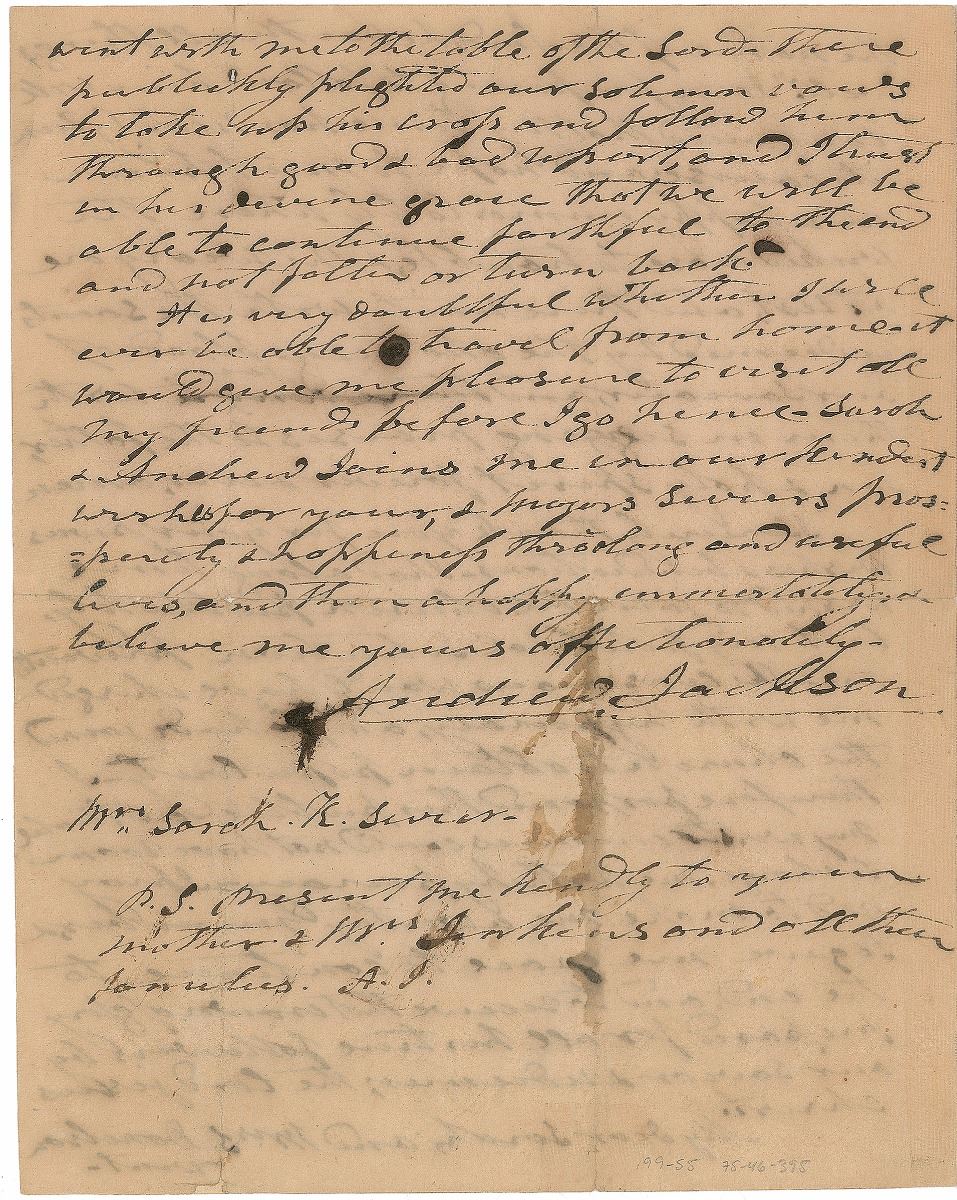 went with me to the table of the Lord - There
publickly plighted our solemn vows
to take up his cross and follow him
through good & bad report, and I trust
in his devine grace that we will be
able to continue faithful to the end
and not falter or turn back.
It is very doubtful whether I will
ever be able to travel from home - it
would give me pleasure to visit all
my friends before I go hence - Sarah
& Andrew Joins me in our kindest
wishes for your, & Majors Seviers pros=
=perity & happiness thro long and useful
lives, and then a happy immortality, &
believe me yours affectionately -
Andrew Jackson
Mrs. Sarah. K. Sevier -
P.S. present me kindly to your
mother & Mrs Jenkens and all their
families. A. J.
199-55 78-46-398